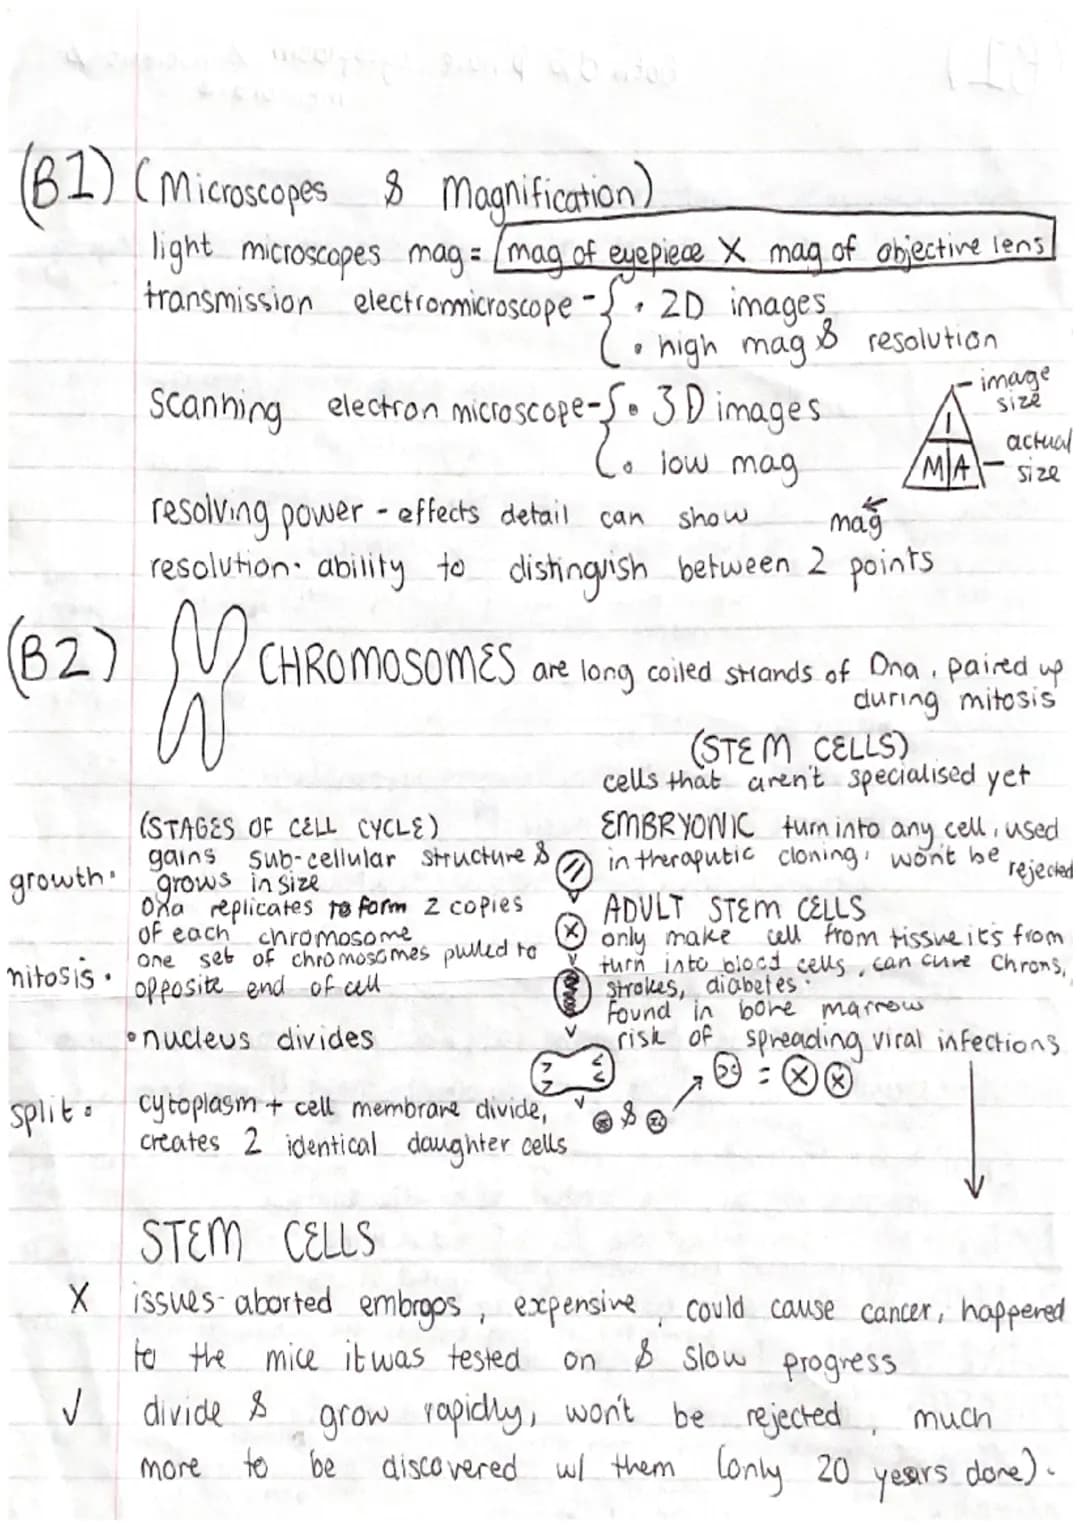 (B1) (Microscopes & Magnification)
light microscopes mag = mag of eyepiece X mag of objective lens
transmission electronmicroscope - { • 2D images
• high mag & resolution
Scanning electron microscope - { • 3D images
• low mag
image size
I
M A
actual size
mag
resolving power - effects detail can show
resolution • ability to distinguish between 2 points
(B2) CHROMOSOMES are long coiled strands of Dna, paired up
during mitosis
(STEM CELLS)
cells that aren't specialised yet
EMBRYONIC turn into any cell, used
in theraputic cloning, won't be rejected
ADULT STEM CELLS
only make cell from tissue it's from
turn into blood cells, can cure Chrons,
strokes, diabetes.
found in bone marrow
risk of spreading viral infections
(STAGES OF CELL CYCLE)
growth • gains sub-cellular structure &
grows in size
Dna replicates to form 2 copies
of each chromosome
mitosis • one set of chromosomes pulled to
opposite end of cell
• nucleus divides
split • cytoplasm + cell membrane divide,
creates 2 identical daughter cells
& =
STEM CELLS
X issues - aborted embroos, expensive, could cause cancer, happened
to the mice it was tested on & slow progress
✓ divide & grow rapidly, won't be rejected, much
more to be discovered w/ them (only 20 years done).